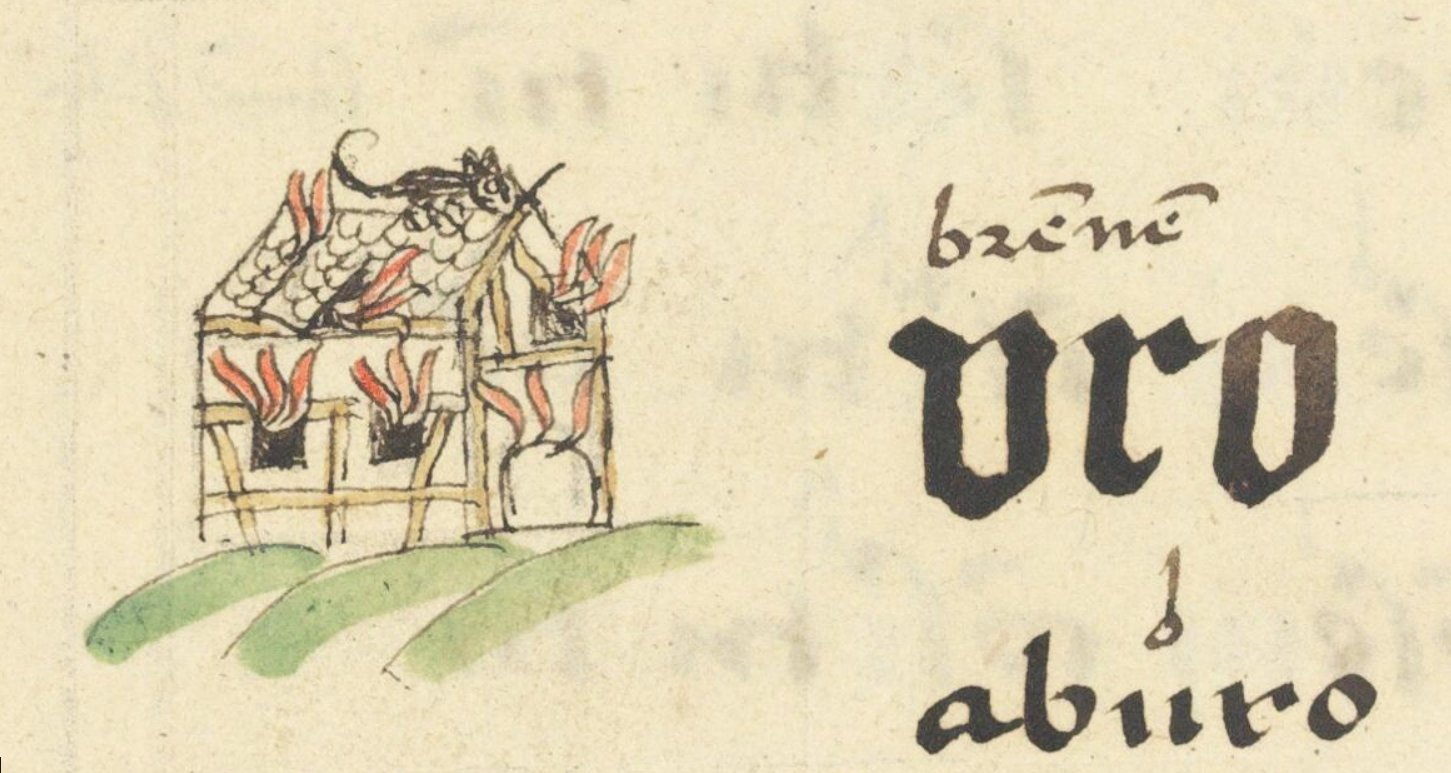 brēnē
vro
aburo